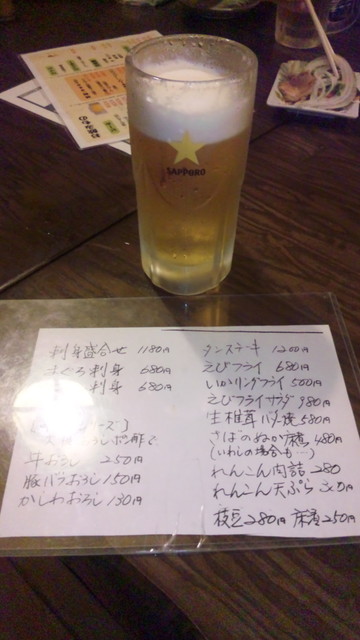 SAPPORO
刺身盛合せ 1180円
まぐろ刺身 680円
刺身 680円
牛おろし 250円
豚バラおろし 150円
かしわおろし 130円
タンステーキ 1200円
えびフライ 680円
いかリングフライ 500円
えびフライサラダ 980円
生椎茸バター焼 580円
さばのぬか 480円
(いわしの場合も…)
れんこん肉詰 280
れんこん天ぷら
枝豆 280円 250円